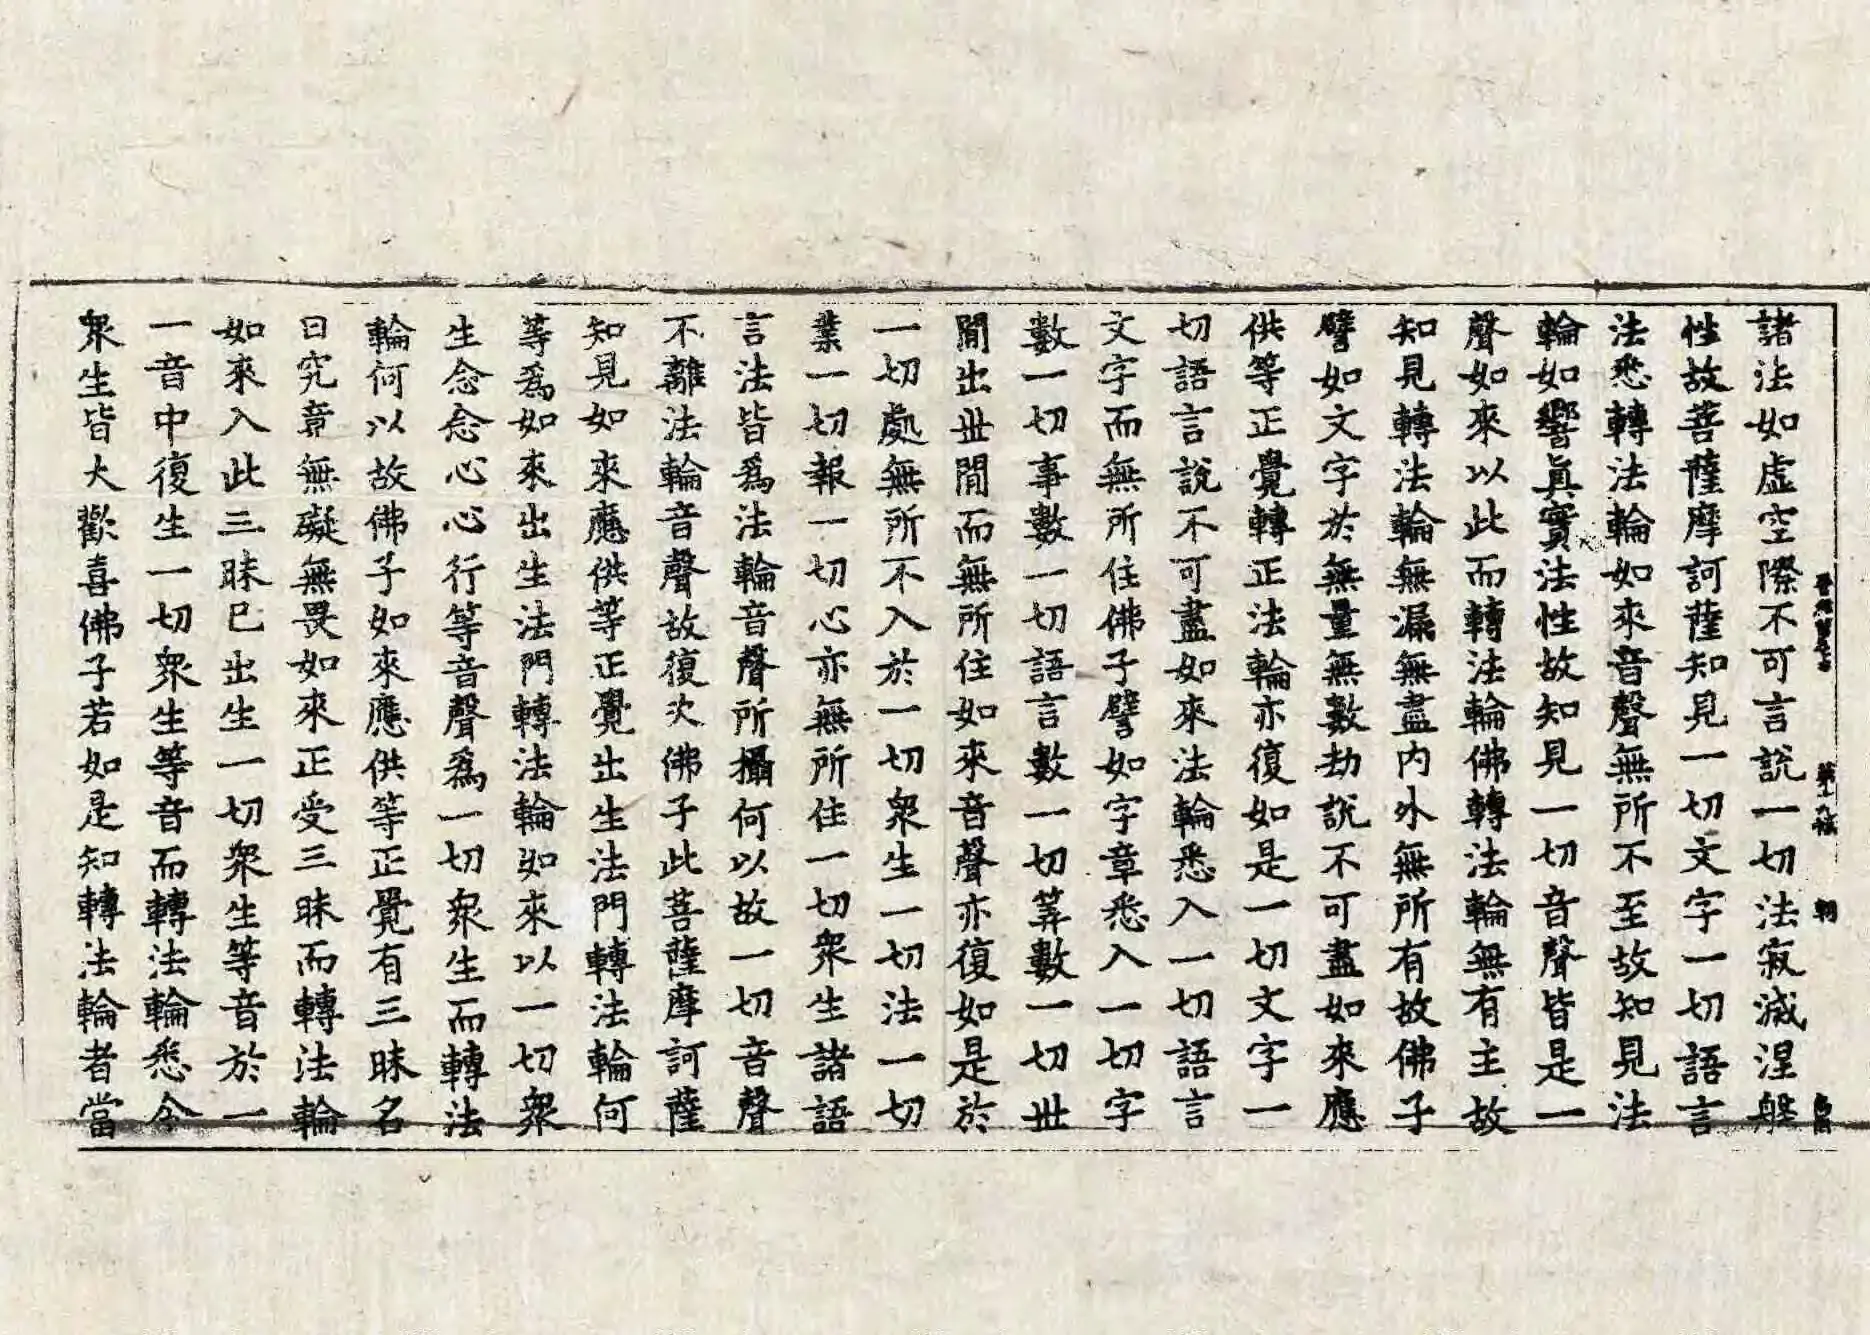 諸法如虛空際不可言說一切法寂滅涅槃
性故菩薩摩訶薩知見一切文字一切語言
法悉轉法輪如來音聲無所不至故知見法
輪如響眞實法性故知見一切音聲皆是一
聲如來以此而轉法輪佛轉法輪無有主故
知見轉法輪無漏無盡內外無所有故佛子
譬如文字於無量無數劫說不可盡如來應
供等正覺轉正法輪亦復如是一切文字一
切語言說不可盡如來法輪悉入一切語言
文字而無所住佛子譬如字章悉入一切字
數一切事數一切語言數一切筭數一切世
間出世間而無所住如來音聲亦復如是於
一切處無所不入於一切衆生一切法一切
業一切報一切心亦無所住一切衆生諸語
言法皆爲法輪音聲所攝何以故一切音聲
不離法輪音聲故復次佛子此菩薩摩訶薩
知見如來應供等正覺出生法門轉法輪何
等爲如來出生法門轉法輪如來以一切衆
生念念心心行等音聲爲一切衆生而轉法
輪何以故佛子如來應供等正覺有三昧名
曰究竟無礙無畏如來正受三昧而轉法輪
如來入此三昧已出生一切衆生等音於一
一音中復生一切衆生等音而轉法輪悉令
衆生皆大歡喜佛子若如是知轉法輪者當